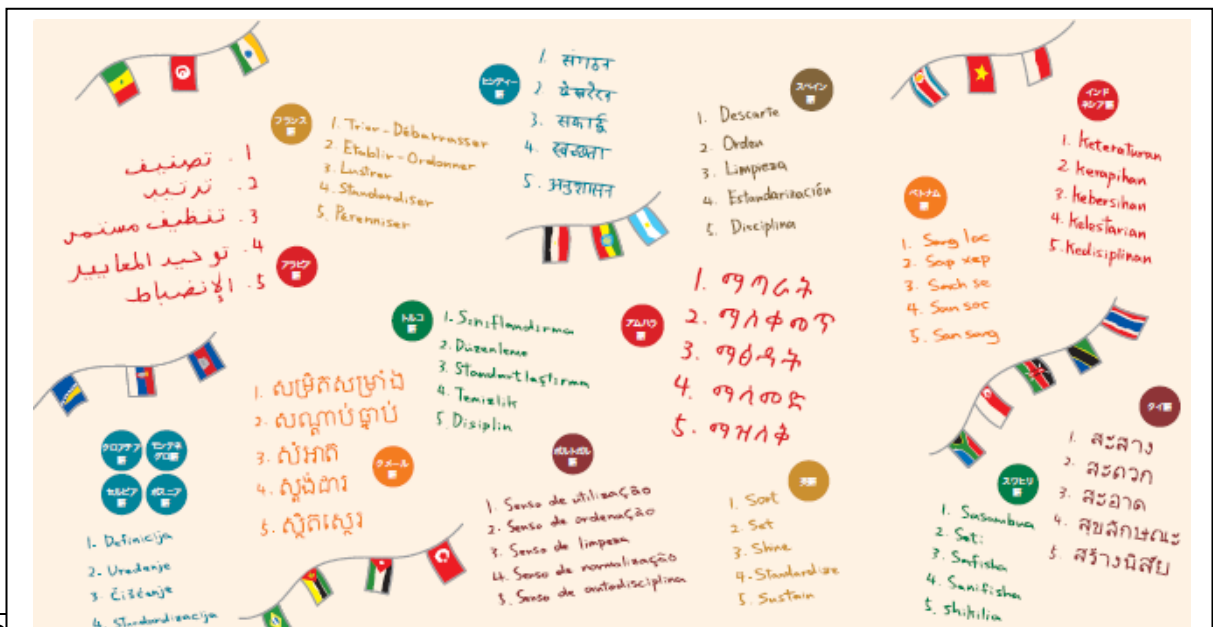 フランス語
1. Trier-Débarrasser
2. Etablir-Ordonner
3. Lustrer
4. Standardiser
5. Pérenniser
ヒンディー語
1. संगठन
2.
3. सफाई
4. स्वच्छता
5. अनुशासन
スペイン語
1. Descarte
2. Orden
3. Limpieza
4. Estandarización
5. Disciplina
インドネシア語
1. Keteraturan
2. Kerapihan
3. Kebersihan
4. Kelestarian
5. Kedisiplinan
アラビア語
1. تصنيف
2. ترتيب
3. تنظيف مستمر
4. توحيد المعايير
5. الإنضباط
ベトナム語
1. Sang loc
2. Sap xep
3. Sach se
4. San soc
5. San sang
トルコ語
1. Sınıflandırma
2. Düzenleme
3. Standartlaştırma
4. Temizlik
5. Disiplin
アムハラ語
1. ማጣራት
2. ማስቀመጥ
3. ማፅዳት
4. ማላመድ
5. ማዝለቅ
クメール語
1. សម្រិតសម្រាំង
2. សណ្តាប់ធ្នាប់
3. សំអាត
4. ស្តង់ដារ
5. ស្ថិតស្ថេរ
クロアチア語
モンテネグロ語
セルビア語
ボスニア語
1. Definicija
2. Uređenje
3. Čišćenje
4. Standardizacija
ポルトガル語
1. Senso de utilização
2. Senso de ordenação
3. Senso de limpeza
4. Senso de normalização
5. Senso de autodisciplina
英語
1. Sort
2. Set
3. Shine
4. Standardize
5. Sustain
スワヒリ語
1. Sasambua
2. Seti
3. Safisha
4. Sanifisha
5. Shikilia
タイ語
1. สะสาง
2. สะดวก
3. สะอาด
4. สุขลักษณะ
5. สร้างนิสัย